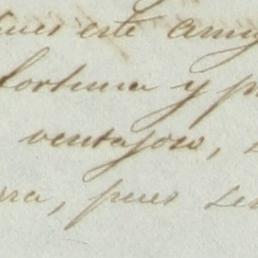 este amig
fortuna y p
ventajosa,
ra, pues ser